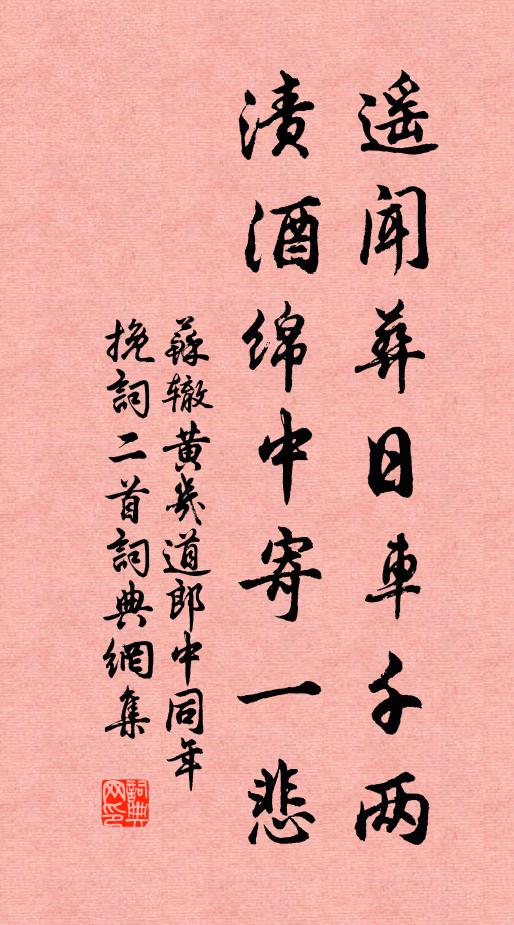 遥闻葬日车千两
渍酒绵中寄一悲
蘇辙黄幾道郎中同年
挽詞二首詞典網集
詞典网印